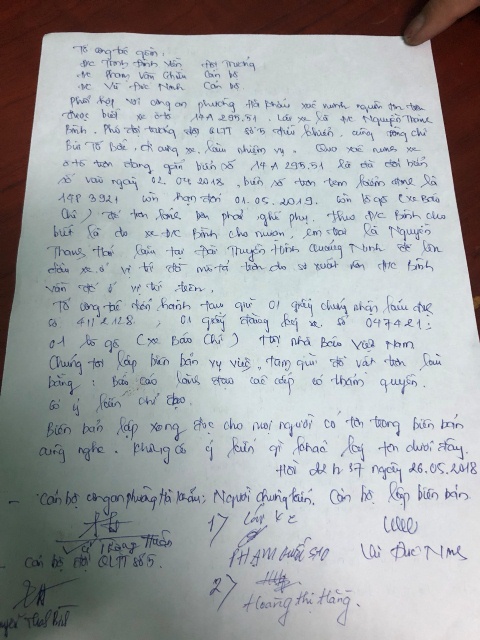 Tổ công tác gồm.
Đ/c Trịnh Đình Văn Đội Trưởng
Đ/c Phạm Văn Chiến Cán bộ.
Đ/c Vũ Đức Ninh Cán bộ.
Phối hợp với công an phường Hà Khẩu xác minh nguồn tin đơn
được biết xe ô tô 14A 295.51. Lái xe là Đ/c Nguyễn Thanh
Bình. Phó đội trưởng đội QLTT số 5 điều khiển, cùng đồng chí
Bùi Tố Bắc. đi cùng xe, làm nhiệm vụ. Qua xác minh xe
ô tô trên đang gắn biển số 14A 295.51 là đã đổi biển
số vào ngày 02.04.2018, biển số trên tem kiểm định là
14P 3921 hạn đến 01.05.2019. lô gô (xe Báo
Chí) để trên kính bên phải ghế phụ. Theo Đ/c Bình cho
biết là do xe Đ/c Bình cho mượn, em trai là Nguyễn
Thanh Hải làm tại Đài Truyền Hình Quảng Ninh để lên
đầu xe ở vị trí đã mô tả trên do sơ xuất nên Đ/c Bình
vẫn để ở vị trí trên.
Tổ công tác tiến hành tạm giữ 01 giấy chứng nhận kiểm định
số 4112128, 01 giấy đăng ký xe số 047421:
01 lô gô (xe Báo Chí) Hội nhà Báo Việt Nam
Chúng tôi lập biên bản vụ việc, tạm giữ đồ vật trên làm
bằng: Báo cáo lãnh đạo các cấp có thẩm quyền.
có ý kiến chỉ đạo.
Biên bản lập xong đọc cho mọi người có tên trong biên bản
cùng nghe. Không có ý kiến gì khác ký tên dưới đây.
Hồi 22h 37 ngày 26.05.2018
- Cán bộ công an phường Hà Khẩu: Người chứng kiến. Cán bộ lập biên bản
1>
PHẠM QUỐC Vũ Đức Ninh
- Cán bộ đội QLTT số 5.
2>
Hoàng Thị Hằng.